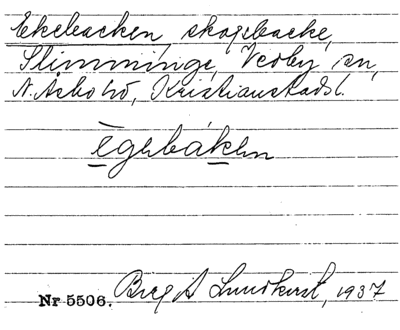 Ekebacken skogsbacke,
Slimminge, Verby sn,
N. Åsbo hd, Kristianstads l.
ēgəbákən
Nr 5506. Lundkvist, 1937